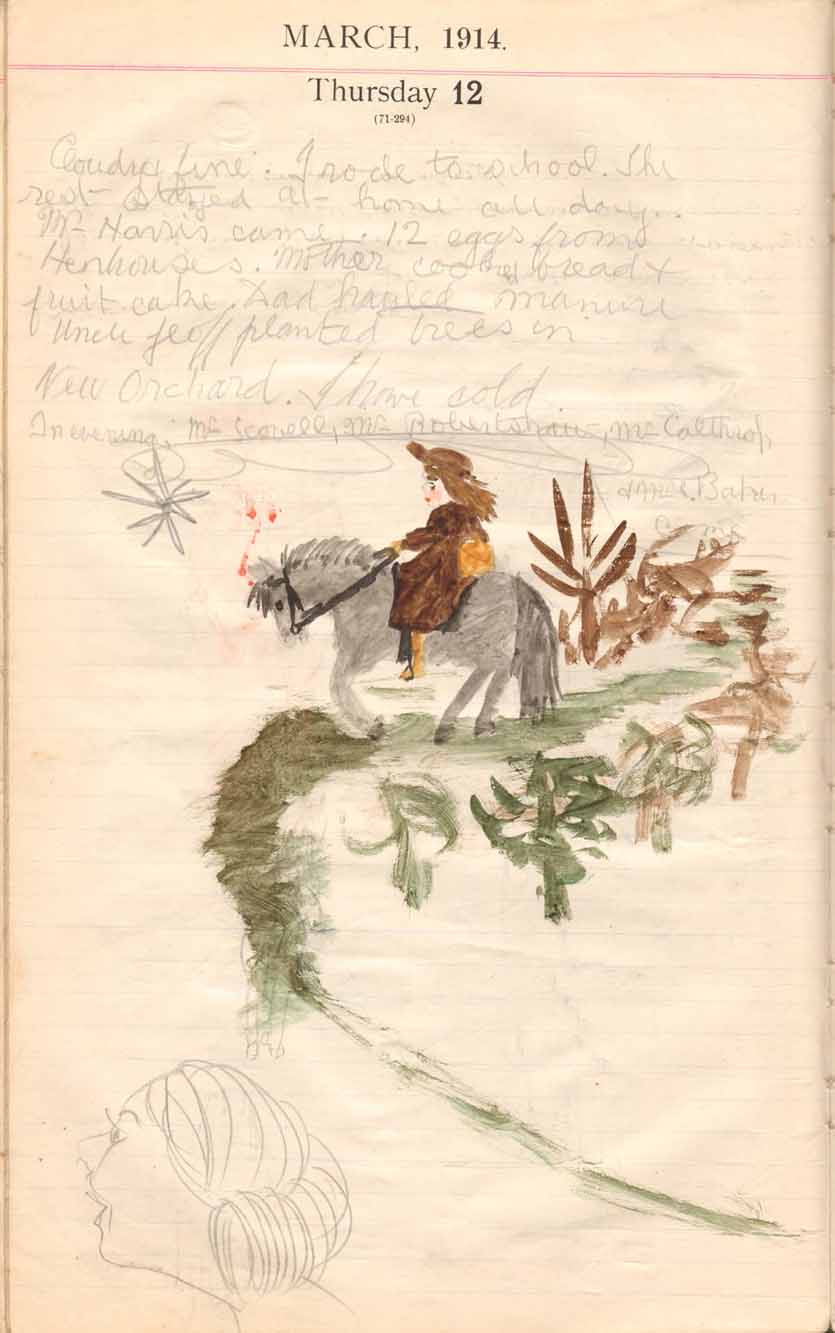 MARCH, 1914.
Thursday 12
(71-294)
Cloudy fine. I rode to school. The
rest stayed at home all day.
Mr Harris came. 12 eggs from
Henhouses. Mother cooked bread &
fruit cake. Dad hauled manure
Uncle Geoff planted trees in
New Orchard. I have sold
In evening: Mr Scovell, Mr Robertshaw, Mr Calthrop,